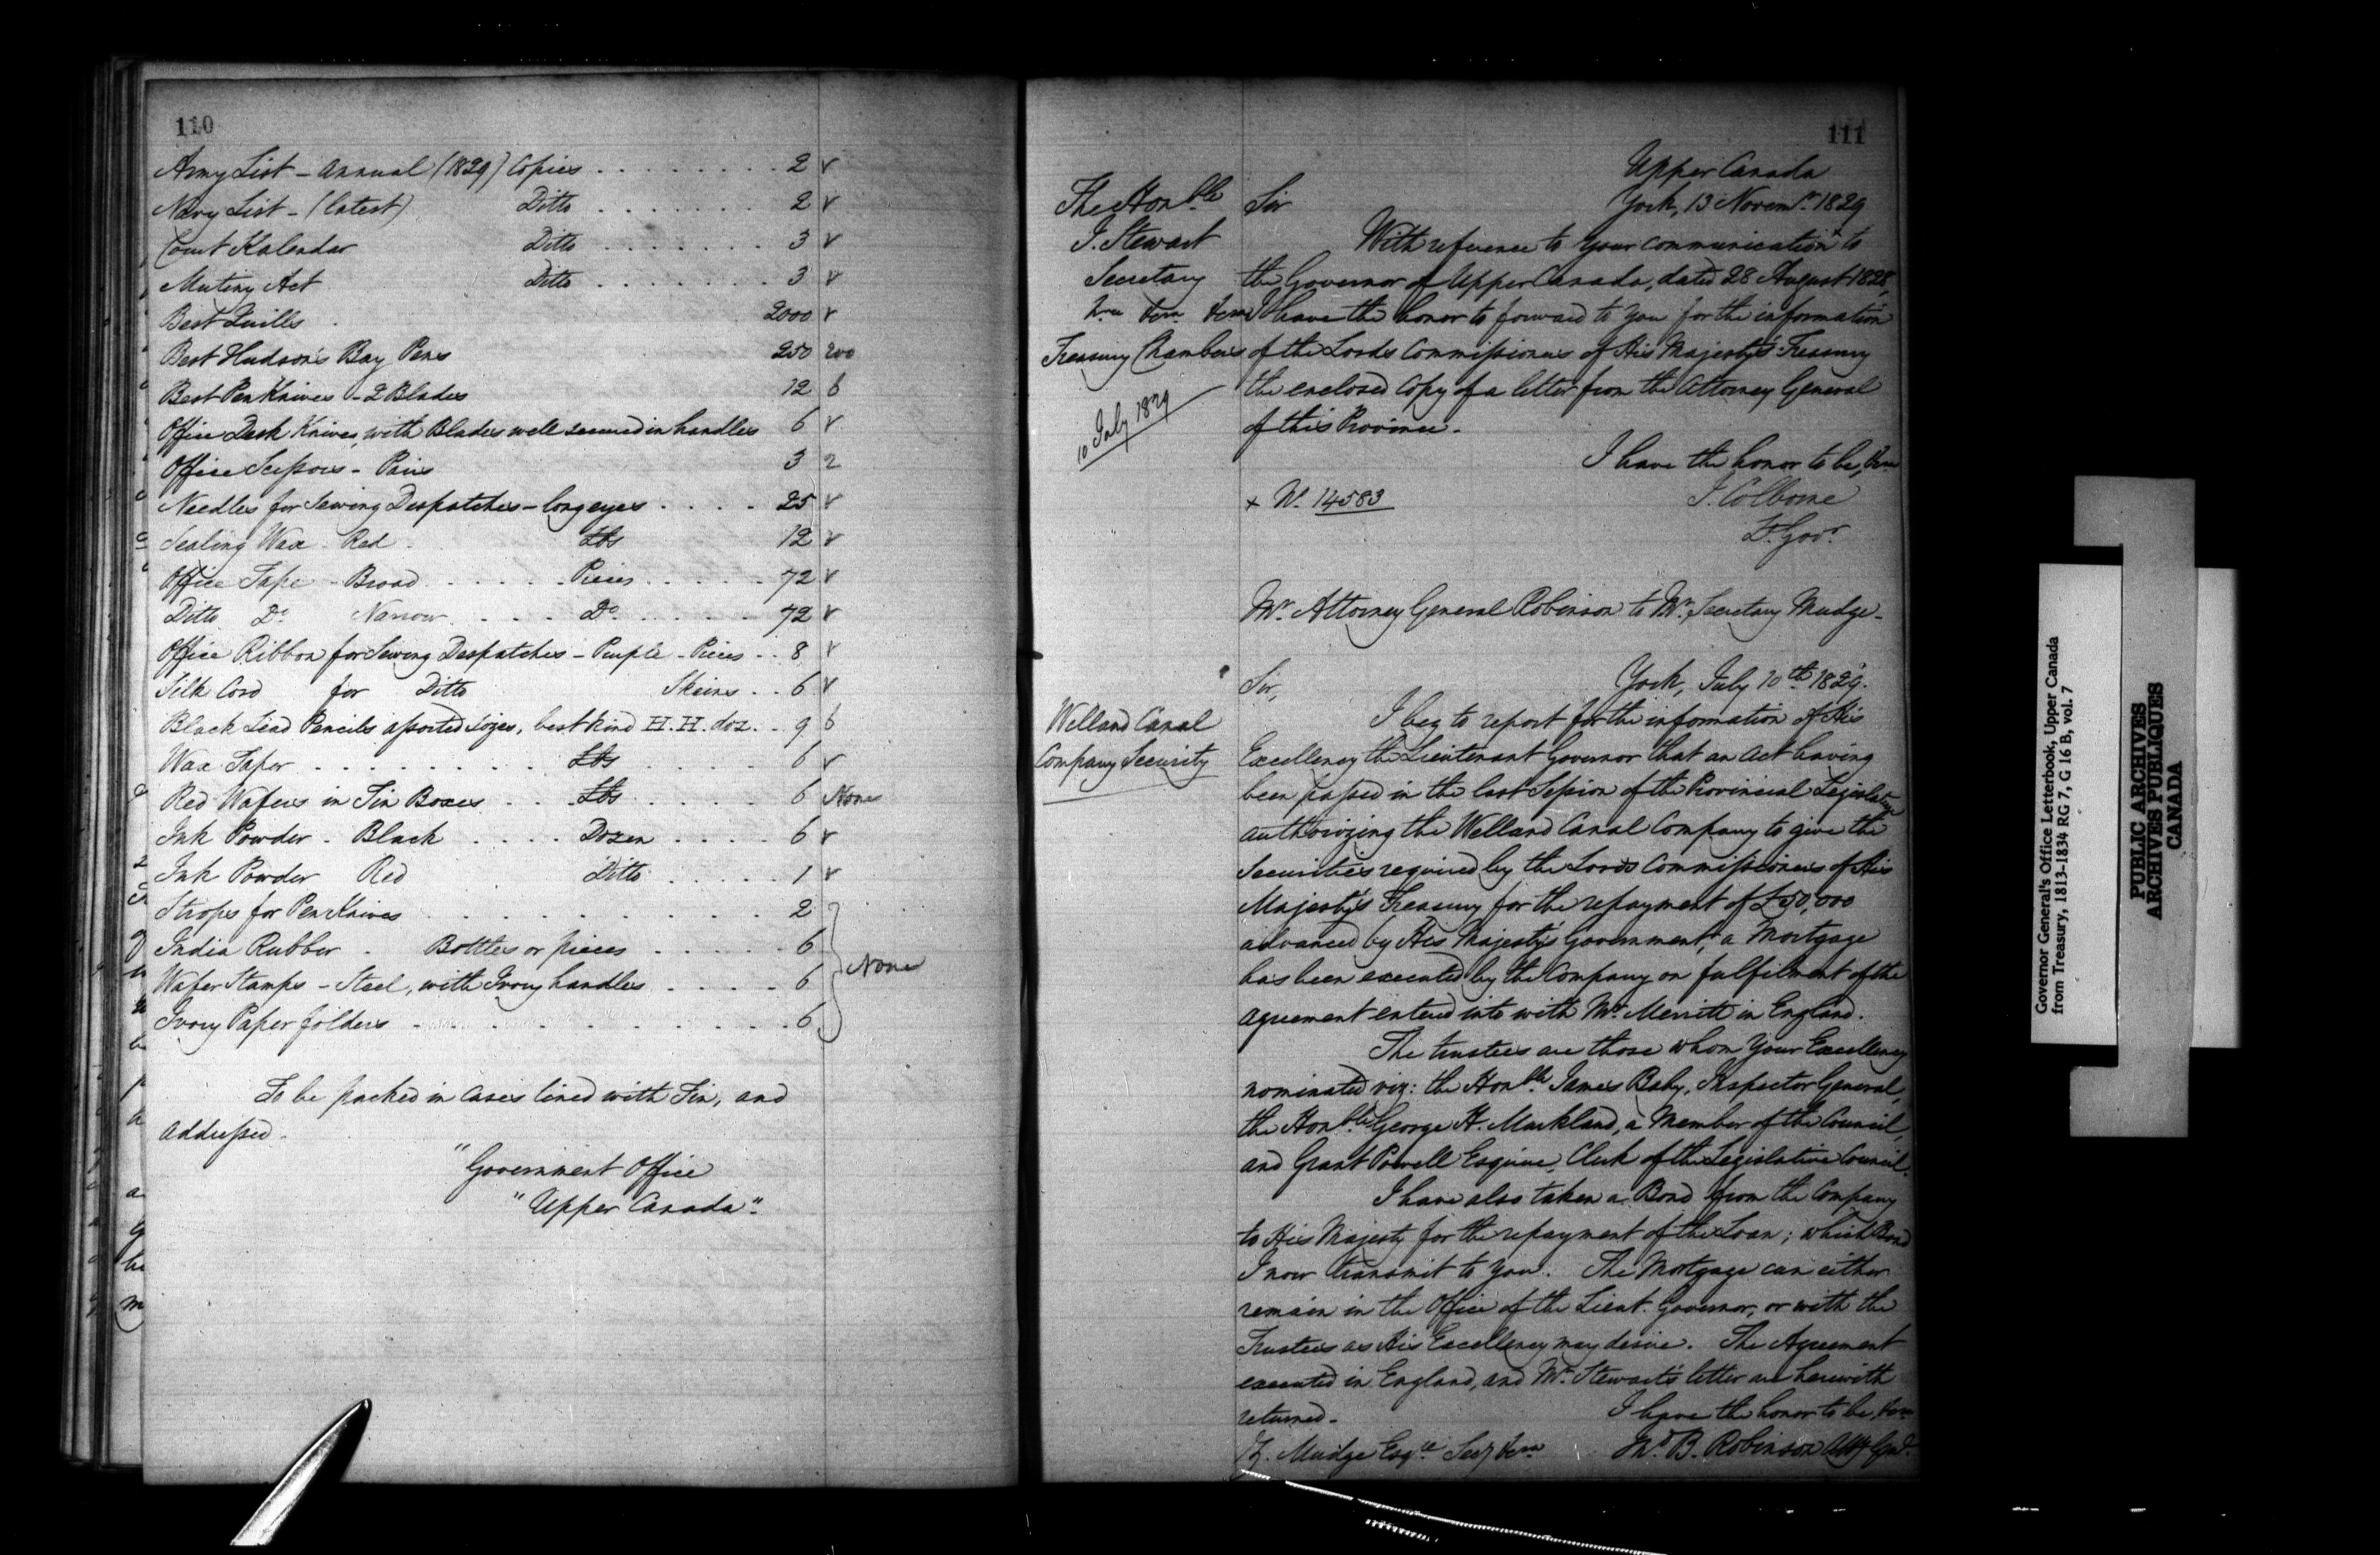 110
Army List - Annual (1829) Copies . . . . . . . . 2 v
Navy List - (latest) Ditto . . . . . . . 2 v
Court Kalendar Ditto . . . . . . . 3 v
Mutiny Act Ditto . . . . . . . 3 v
Best Quills . 2000 v
Best Hudson's Bay Pens 250 200
Best Pen Knives - 2 Blades 12 6
Office Desk Knives, with Blades well secured in handles 6 v
Office Scissors - Pairs 3 2
Needles for Sewing Despatches - long eyes . . . . 25 v
Sealing Wax - Red . Lbs 12 v
Office Tape - Broad . . . . . Pieces . . . . . 72 v
Ditto Do Narrow . . . . Do . . . . . 72 v
Office Ribbon for Sewing Despatches - Purple - Pieces . . 8 v
Silk Cord for Ditto Skeins . . 6 v
Black Lead Pencils assorted sizes, best kind H.H. doz. . . 9 6
Wax Taper . . . . . . . . . Lbs . . . . . 6 v
Red Wafers in Tin Boxes . . . Lbs . . . . . 6 None
Ink Powder - Black . . . . Dozen . . . . 6 v
Ink Powder Red Ditto . . . . . 1 v
Strops for Pen Knives . . . . . . . . . . . 2
India Rubber . Bottles or pieces . . . . . 6
Wafer Stamps - Steel, with Ivory handles . . . . 6
None
Ivory Paper folders . . . . . . . . . . . . 6
To be packed in Cases lined with Tin, and
Addressed -
"Government Office
"Upper Canada".
111
Upper Canada
York, 13 Novemr. 1829
The Honble
J. Stewart
Secretary
Treasury Chambers
10 July 1829
Sir
With reference to your communication x to
the Governor of Upper Canada, dated 28 August 1828,
I have the honor to forward to you for the information
of the Lords Commissioners of His Majesty's Treasury
the enclosed Copy of a letter from the Attorney General
of this Province.
I have the honor to be,
J. Colborne
Lt. Govr.
x No. 14583
Mr. Attorney General Robinson to Mr. Secretary Mudge -
York, July 10th 1829.
Sir,
Welland Canal
Company Security
I beg to report for the information of His
Excellency the Lieutenant Governor that an Act having
been passed in the last Session of the Provincial Legislature
authorizing the Welland Canal Company to give the
Securities required by the Lords Commissioners of His
Majesty's Treasury for the repayment of £50,000
advanced by His Majesty's Government, a Mortgage
has been executed by the Company on fulfilment of the
agreement entered into with Mr. Merritt in England.
The trustees are those whom Your Excellency
nominated viz: the Honble. James Baby, Inspector General,
the Honble. George H. Markland, a Member of the Council,
and Grant Powell Esquire, Clerk of the Legislative Council.
I have also taken a Bond from the Company
to His Majesty for the repayment of the Loan; which Bond
I now transmit to you. The Mortgage can either
remain in the Office of the Lieut. Governor, or with the
Trustees as His Excellency may desire. The Agreement
executed in England, and Mr. Stewart's letter are herewith
returned - I have the honor to be,
Z. Mudge Esqre. Jno. B. Robinson Atty Genl.
Governor General's Office Letterbook, Upper Canada
from Treasury, 1813-1834 RG 7, G 16 B, vol. 7
PUBLIC ARCHIVES
ARCHIVES PUBLIQUES
CANADA